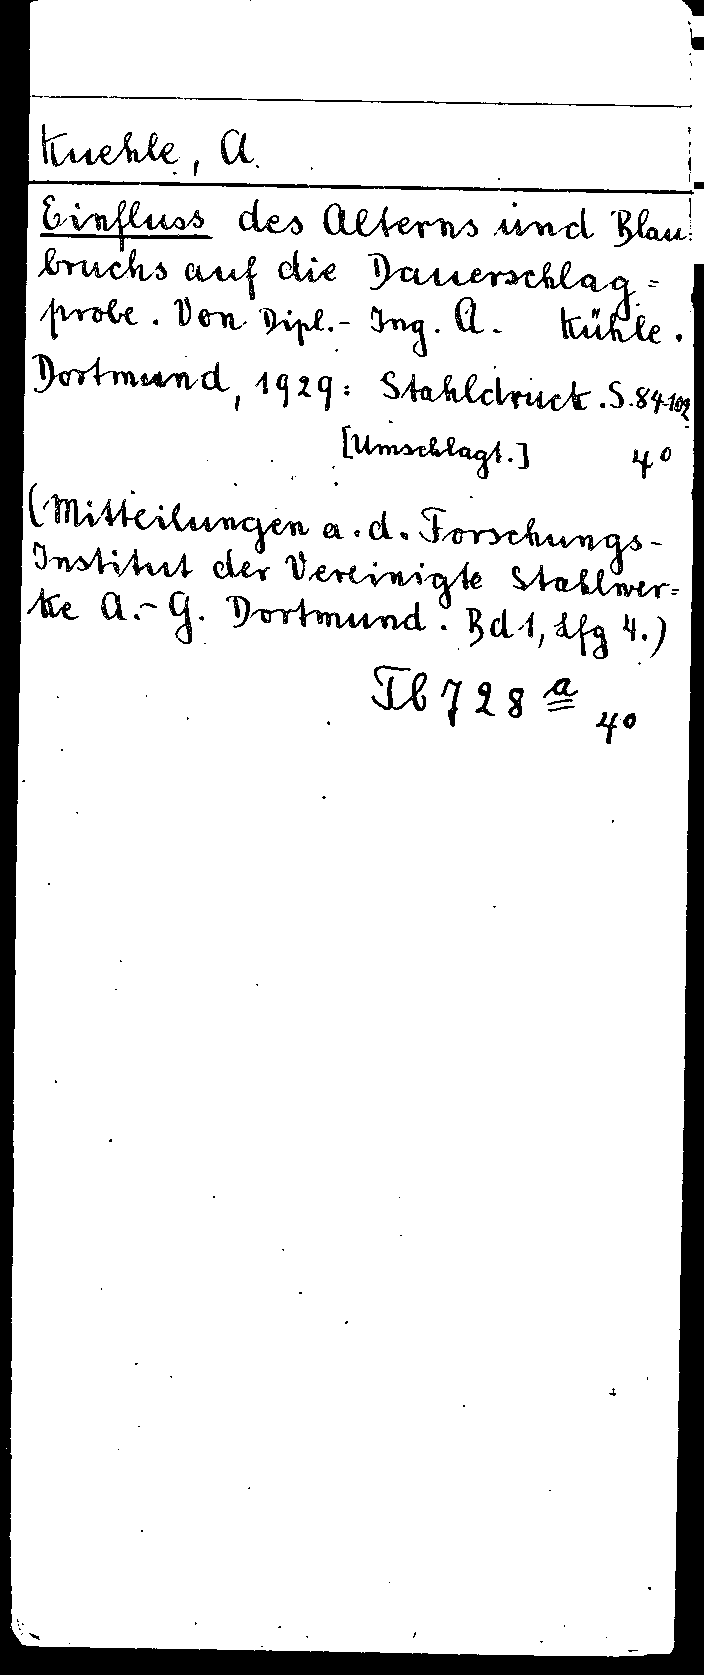 Kuehle, A.
Einfluss des Alterns und Blau
bruchs auf die Dauerschlag=
probe. Von Dipl.- Ing. A. Kühle.
Dortmund, 1929: Stahldruck. S. 84-102
[Umschlagt.] 4°
(Mitteilungen a. d. Forschungs-
Institut der Vereinigte Stahlwer=
ke A.-G. Dortmund. Bd 1, Lfg 4.)
Tb 728 a 4°